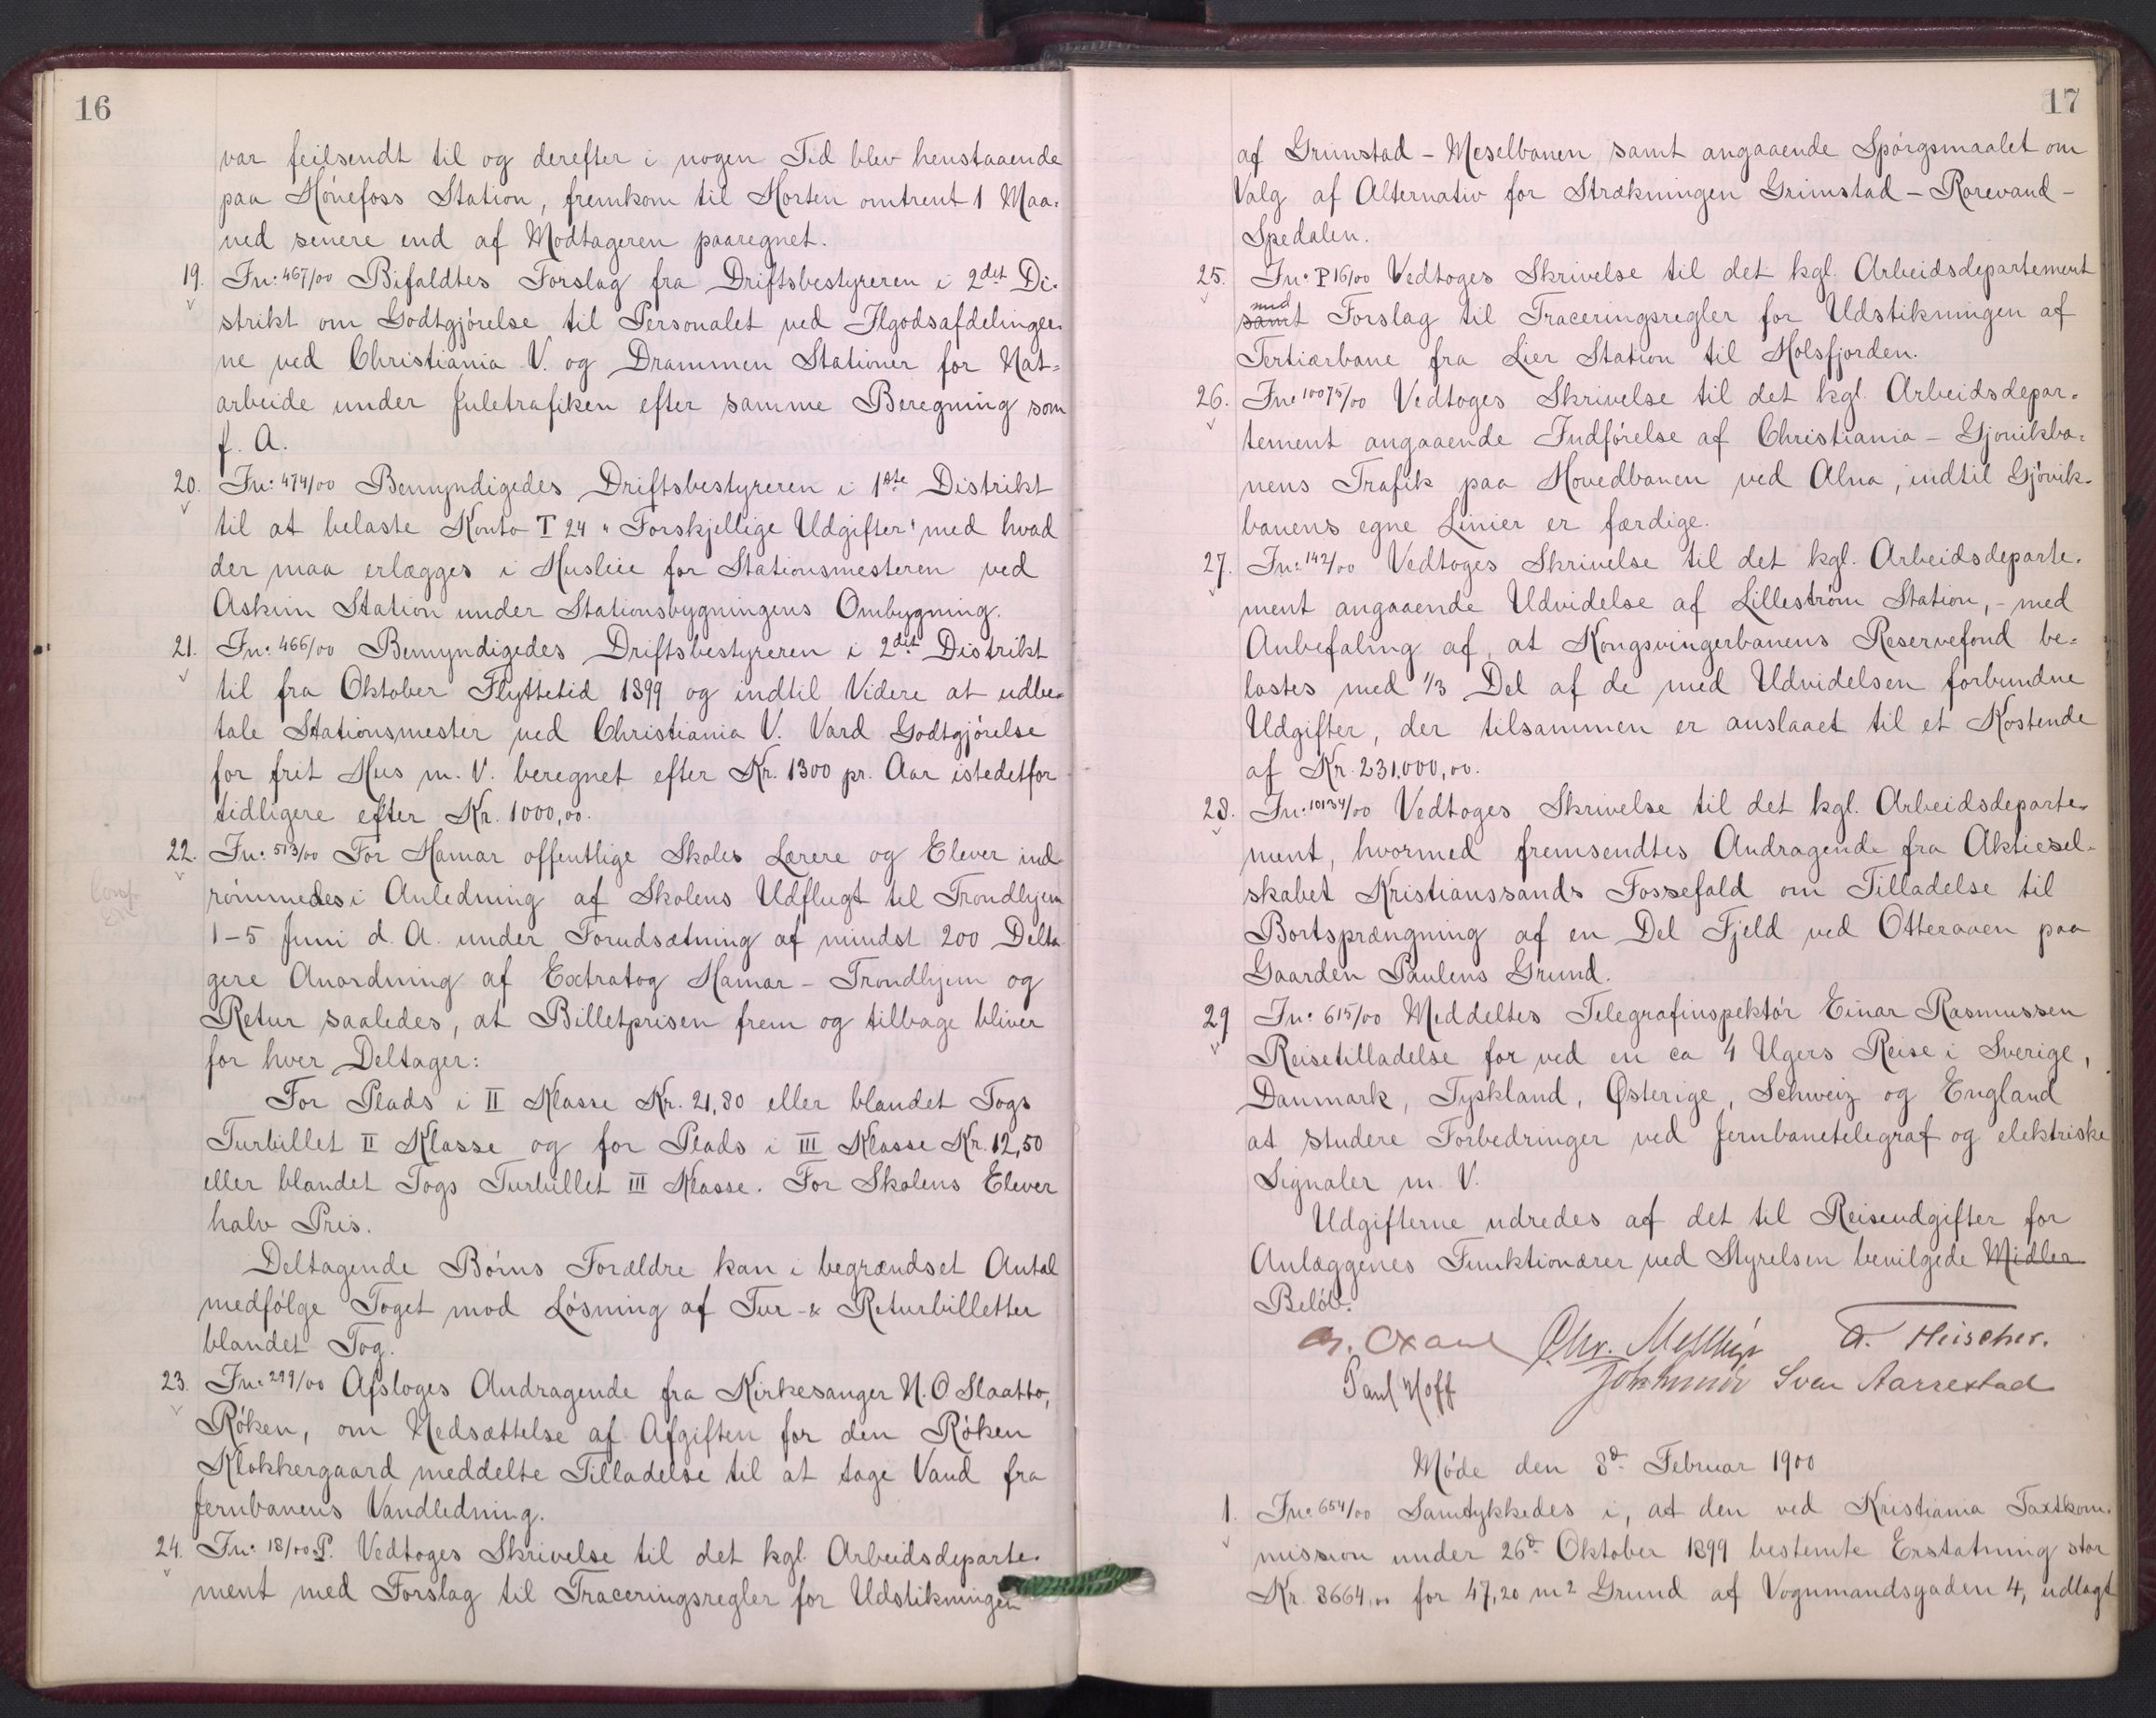 16
var feilsendt til og derefter i nogen Tid blev henstaaende
paa Hönefoss Station, fremkom til Horten omtrent 1 Maa-
ned senere end af Modtageren paaregnet.
19. Jn: 467/00 Bifaldtes Forslag fra Driftsbestyreren i 2det Di-
strikt om Godtgjörelse til Personalet ved Ilgodsafdelinger-
ne ved Christiania V. og Drammen Stationer for Nat=
arbeide under Juletrafiken efter samme Beregning som
f. A.
20. Jn: 474/00 Bemyndigedes Driftsbestyreren i 1ste Distrikt
til at belaste Konto T 24 "Forskjellige Udgifter" med hvad
der maa erlægges i Husleie for Stationsmesteren ved
Askim Station under Stationsbygningens Ombygning.
21. Jn: 466/00 Bemyndigedes Driftsbestyreren i 2det Distrikt
til fra Oktober Flyttetid 1899 og indtil Videre at udbe-
tale Stationsmester ved Christiania V. Vard Godtgjörelse
for frit Hus m. V. beregnet efter Kr. 1300 pr. Aar istedetfor
tidligere efter Kr. 1000,00.
22. Jn: 513/00 For Hamar offentlige Skoles Lærere og Elever ind-
römmedes i Anledning af Skolens Udflugt til Trondhjem
1-5 Juni d. A. under Forudsætning af mindst 200 Delta-
gere Anordning af Extratog Hamar - Trondhjem og
Retur saaledes, at Billetprisen frem og tilbage bliver
for hver Deltager:
For Plads i II Klasse Kr. 21,80 eller blandet Togs
Turbillet II Klasse og for Plads i III Klasse Kr. 12,50
eller blandet Togs Turbillet III Klasse. For Skolens Elever
halv Pris.
Deltagende Börns Forældre kan i begrændset Antal
medfölge Toget mod Lösning af Tur- & Returbilletter
blandet Tog.
23. Jn: 299/00 Afsloges Andragende fra Kirkesanger N. O Slaatto,
Röken, om Nedsættelse af Afgiften for den Röken
Klokkergaard meddelte Tilladelse til at tage Vand fra
Jernbanens Vandledning.
24. Jn: 18/00 P. Vedtoges Skrivelse til det kgl. Arbeidsdeparte-
ment med Forslag til Traceringsregler for Udstikningen
17
af Grimstad - Meselbanen samt angaaende Spörgsmaalet om
Valg af Alternativ for Strækningen Grimstad - Rorevand -
Spedalen.
25. Jn: P 16/00 Vedtoges Skrivelse til det kgl. Arbeidsdepartement
med
samt Forslag til Traceringsregler for Udstikningen af
Tertiærbane fra Lier Station til Holsfjorden.
26. Jn: 10075/00 Vedtoges Skrivelse til det kgl. Arbeidsdepar-
tement angaaende Indförelse af Christiania - Gjövikba-
nens Trafik paa Hovedbanen ved Alna, indtil Gjövik-
banens egne Linier er færdige.
27. Jn: 142/00 Vedtoges Skrivelse til det kgl. Arbeidsdeparte-
ment angaaende Udvidelse af Lilleström Station, - med
Anbefaling af, at Kongsvingerbanens Reservefond be-
lastes med 1/3 Del af de med Udvidelsen forbundne
Udgifter, der tilsammen er anslaaet til et Kostende
af Kr. 231,000,00.
28. Jn: 10134/00 Vedtoges Skrivelse til det kgl. Arbeidsdeparte-
ment, hvormed fremsendtes Andragende fra Aktiesel-
skabet Kristianssands Fossefald om Tilladelse til
Bortsprængning af en Del Fjeld ved Otteraaen paa
Gaarden Paulens Grund.
29 Jn: 615/00 Meddeltes Telegrafinspektör Einar Rasmussen
Reisetilladelse for ved en ca 4 Ugers Reise i Sverige,
Danmark, Tyskland, Østerige, Schweiz og England
at studere Forbedringer ved Jernbanetelegraf og elektriske
Signaler m. V.
Udgifterne udredes af det til Reiseudgifter for
Anlæggenes Funktionærer ved Styrelsen bevilgede Midler
Belöb.
Paul Hoff Sven Aarrestad
Möde den 8de Februar 1900
1. Jn: 654/00 Samtykkedes i, at den ved Kristiania Taxtkom-
mission under 26de Oktober 1899 bestemte Erstatning stor
Kr. 8664,00 for 47,20 m2 Grund af Vognmandsgaden 4, udlagt